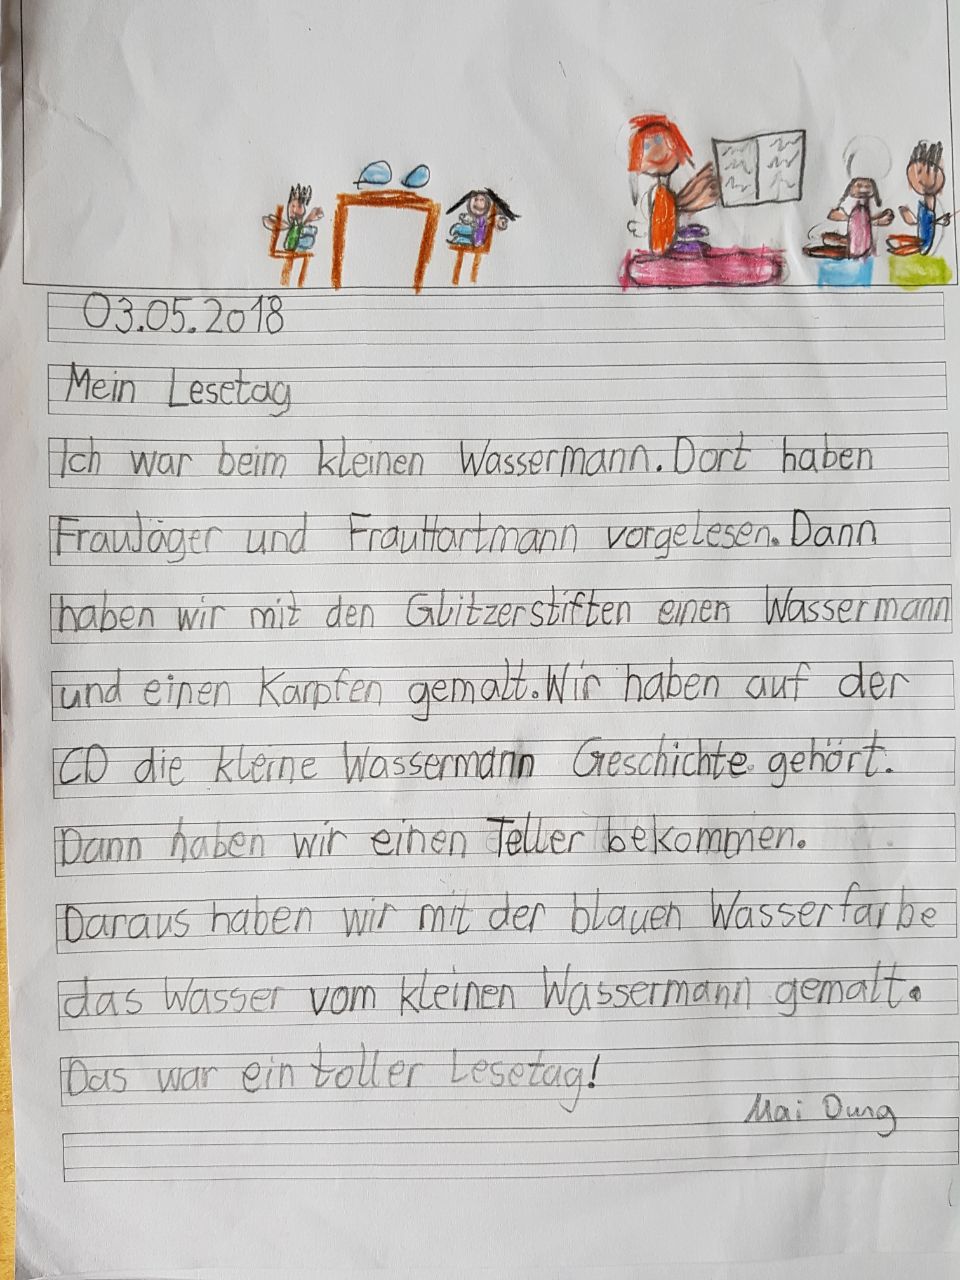 03.05.2018
Mein Lesetag
Ich war beim kleinen Wassermann. Dort haben
Frau Jäger und Frau Hartmann vorgelesen. Dann
haben wir mit den Glitzerstiften einen Wassermann
und einen Karpfen gemalt. Wir haben auf der
CD die kleine Wassermann Geschichte gehört.
Dann haben wir einen Teller bekommen.
Daraus haben wir mit der blauen Wasserfarbe
das Wasser vom kleinen Wassermann gemalt.
Das war ein toller Lesetag!
Mai Dung